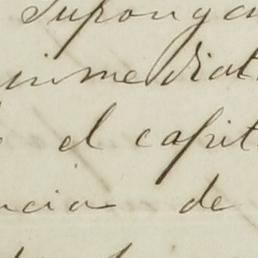 Supongan
inmediat
el capit
ncia de